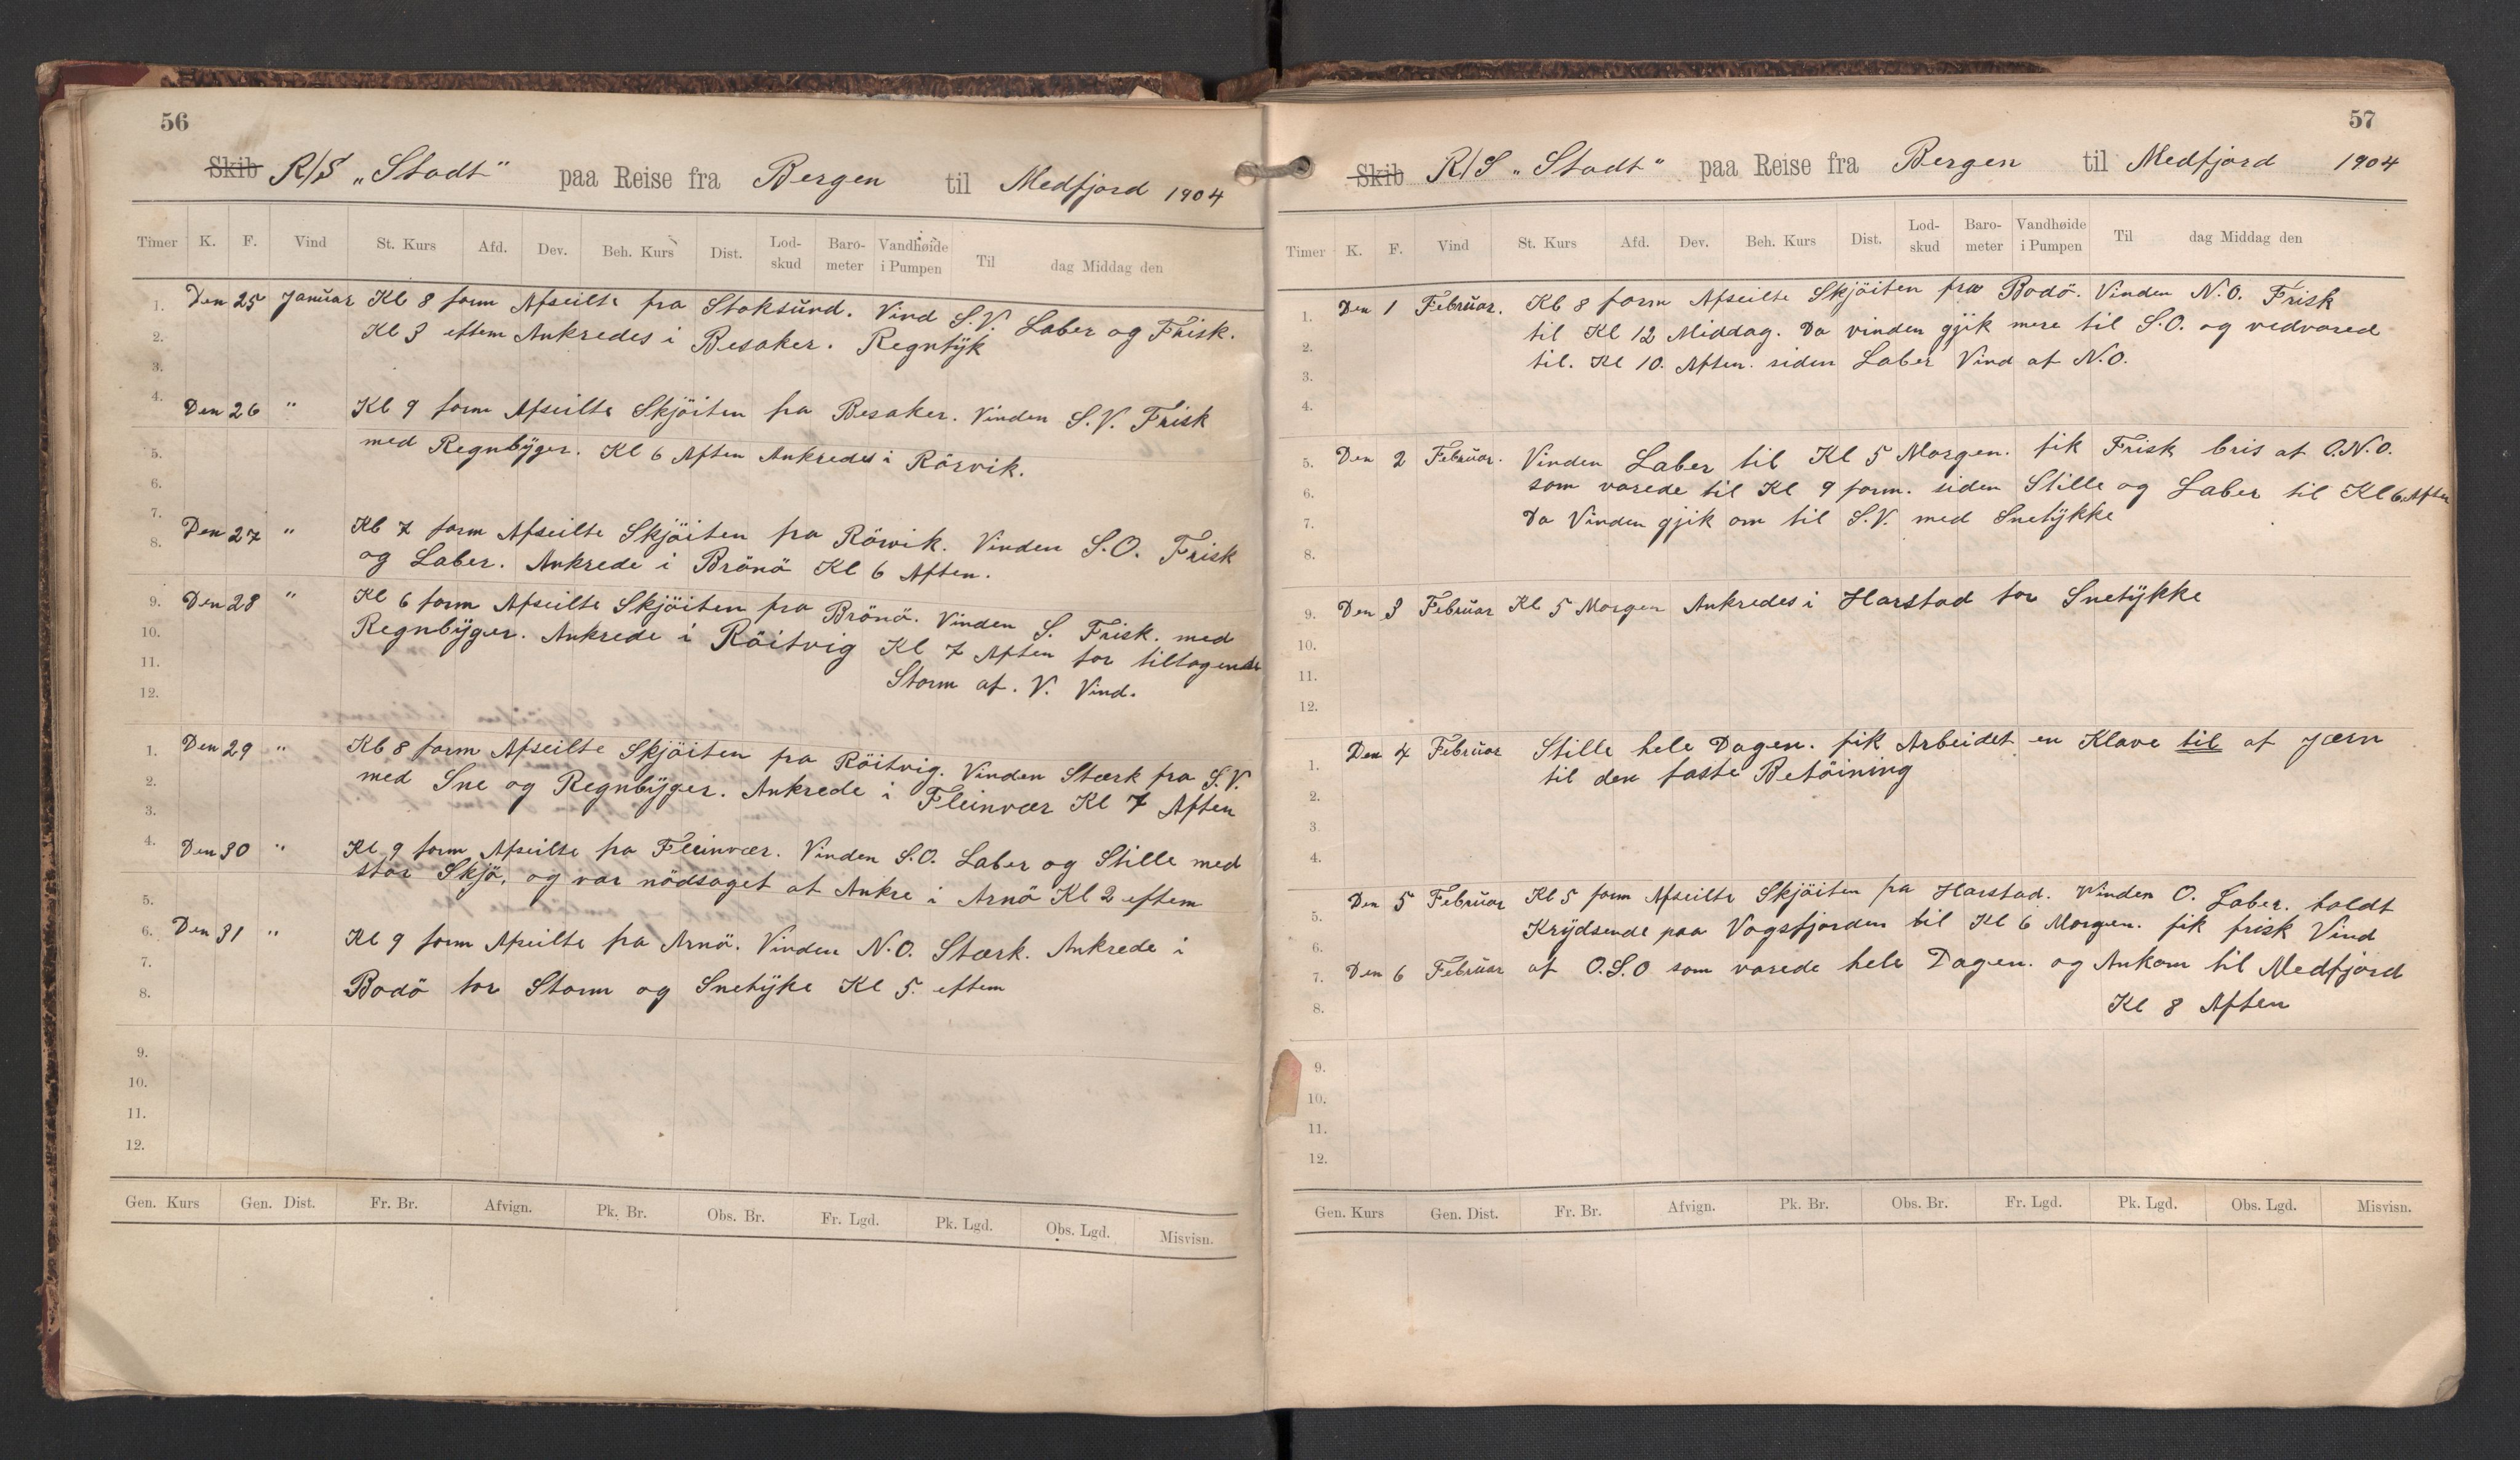 56
Skib R/S „Stadt“ paa Reise fra Bergen til Medfjord 1904
Timer K. F. Vind St. Kurs Afd. Dev. Beh. Kurs Dist. Lod-skud Baro-meter Vandhøide i Pumpen Til dag Middag den
1. Den 25 Januar Kl 8 form Afseilte fra Stoksund. Vind S.V. Laber og Frisk.
2. Kl 3 eftem Ankredes i Besaker. Regntÿk
3.
4. Den 26 " Kl 9 form Afseilte Skjöiten fra Besaker. Vinden S.V. Frisk
5. med Regnbÿger. Kl 6 Aften Ankredes i Rörvik.
6.
7.
8. Den 27 " Kl 7 form Afseilte Skjöiten fra Rörvik. Vinden S.O. Frisk
og Laber. Ankrede i Brönö Kl 6 Aften.
9. Den 28 " Kl 6 form Afseilte Skjöiten fra Brönö. Vinden S. Frisk. med
10. Regnbÿger. Ankrede i Röitvig Kl 7 Aften for tiltagende
11. Storm af. V. Vind.
12.
1. Den 29 " Kl 8 form Afseilte Skjöiten fra Röitvig. Vinden Stærk fra S.V.
2. med Sne og Regnbÿger. Ankrede i Fleinvær Kl 7 Aften
3.
4. Den 30 " Kl 9 form Afseilte fra Fleinvær. Vinden S.O. Laber og Stille med
stor Skjö, og var nödsaget at Ankre i Arnö Kl 2 eftem
5.
6. Den 31 " Kl 9 form Afseilte fra Arnö. Vinden N.O. Stærk. Ankrede i
7.
8. Bodö for Storm og Snetÿke Kl 5. eftem
9.
10.
11.
12.
Gen. Kurs Gen. Dist. Fr. Br. Afvign. Pk. Br. Obs. Br. Fr. Lgd. Pk. Lgd. Obs. Lgd. Misvisn.
57
Skib R/S „Stadt“ paa Reise fra Bergen til Medfjord 1904
Timer K. F. Vind St. Kurs Afd. Dev. Beh. Kurs Dist. Lod-skud Baro-meter Vandhøide i Pumpen Til dag Middag den
1. Den 1 Februar. Kl 8 form Afseilte Skjöiten fra Bodö. Vinden N.O. Frisk
2. til Kl 12 Middag. Da vinden gjik mere til S.O. og vedvared
3. til. Kl 10. Aften. siden Laber Vind af N.O.
4.
5. Den 2 Februar. Vinden Laber til Kl 5 Morgen. fik Frisk bris af O.N.O.
6. som varede til Kl 9 form. siden Stille og Laber til Kl 6 Aften
7. Da Vinden gjik om til S.V. med Snetÿkke
8.
9. Den 3 Februar Kl 5 Morgen Ankredes i Harstad for Snetÿkke
10.
11.
12.
1. Den 4 Februar Stille hele Dagen. fik Arbeidet en Klave til af Jærn
til den faste Betöining
2.
3.
4.
5. Den 5 Februar Kl 5 form Afseilte Skjöiten fra Harstad. Vinden O. Laber. holdt
6. Krÿdsende paa Vogsfjorden til Kl 6 Morgen. fik frisk Vind
7. Den 6 Februar af O.S.O som varede hele Dagen. og Ankom til Medfjord
8. Kl 8 Aften
9.
10.
11.
12.
Gen. Kurs Gen. Dist. Fr. Br. Afvign. Pk. Br. Obs. Br. Fr. Lgd. Pk. Lgd. Obs. Lgd. Misvisn.